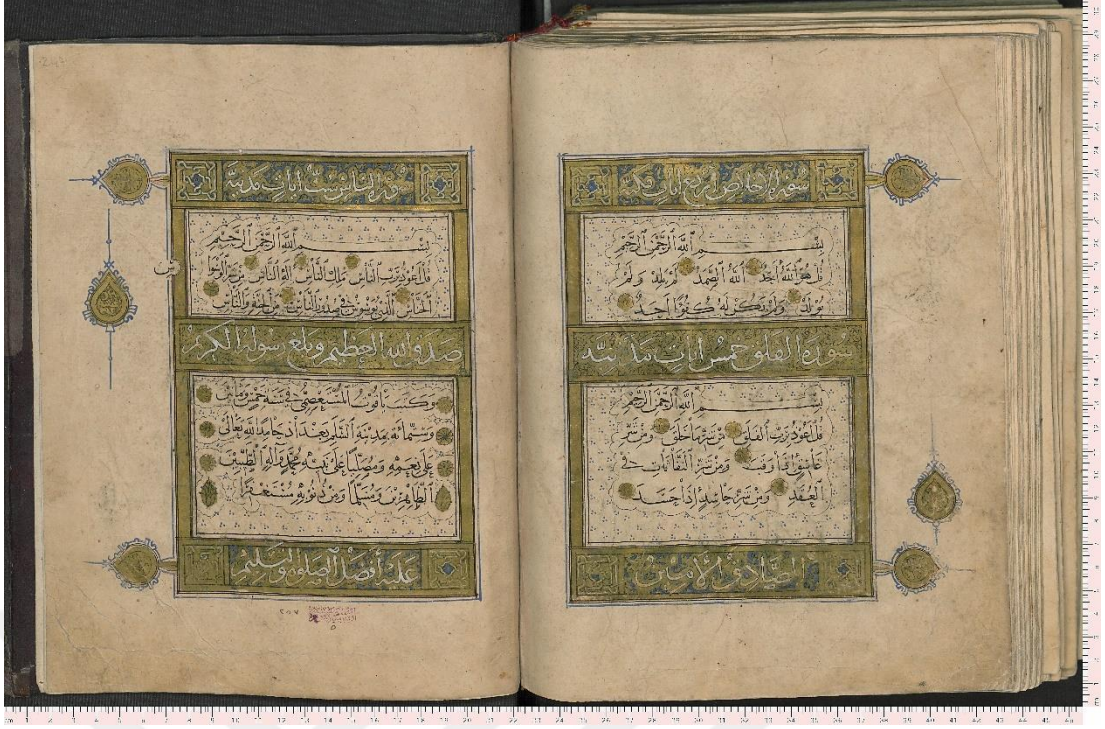 سورة الاخلاص اربع ايات مكية
بسم الله الرحمن الرحيم
قل هو الله احد الله الصمد لم يلد ولم
يولد ولم يكن له كفوا احد
سورة الفلق خمس ايات مدنية
بسم الله الرحمن الرحيم
قل اعوذ برب الفلق من شر ما خلق ومن شر
غاسق اذا وقب ومن شر النفاثات في
العقد ومن شر حاسد اذا حسد
الصادق الامين
سورة الناس ست ايات مدنية
بسم الله الرحمن الرحيم
قل اعوذ برب الناس ملك الناس اله الناس من شر الوسواس
الخناس الذي يوسوس في صدور الناس من الجنة والناس
صدق الله العظيم وبلغ رسوله الكريم
وكتب ياقوت المستعصمي في سنة خمس وثمانين
وستمائة بمدينة السلم بغداد حامدا لله تعالى
على نعمه ومصليا على نبيه محمد وآله الطيبين
الطاهرين ومسلما ومن ذنوبه مستغفرا
عليه افضل الصلوة والتسليم